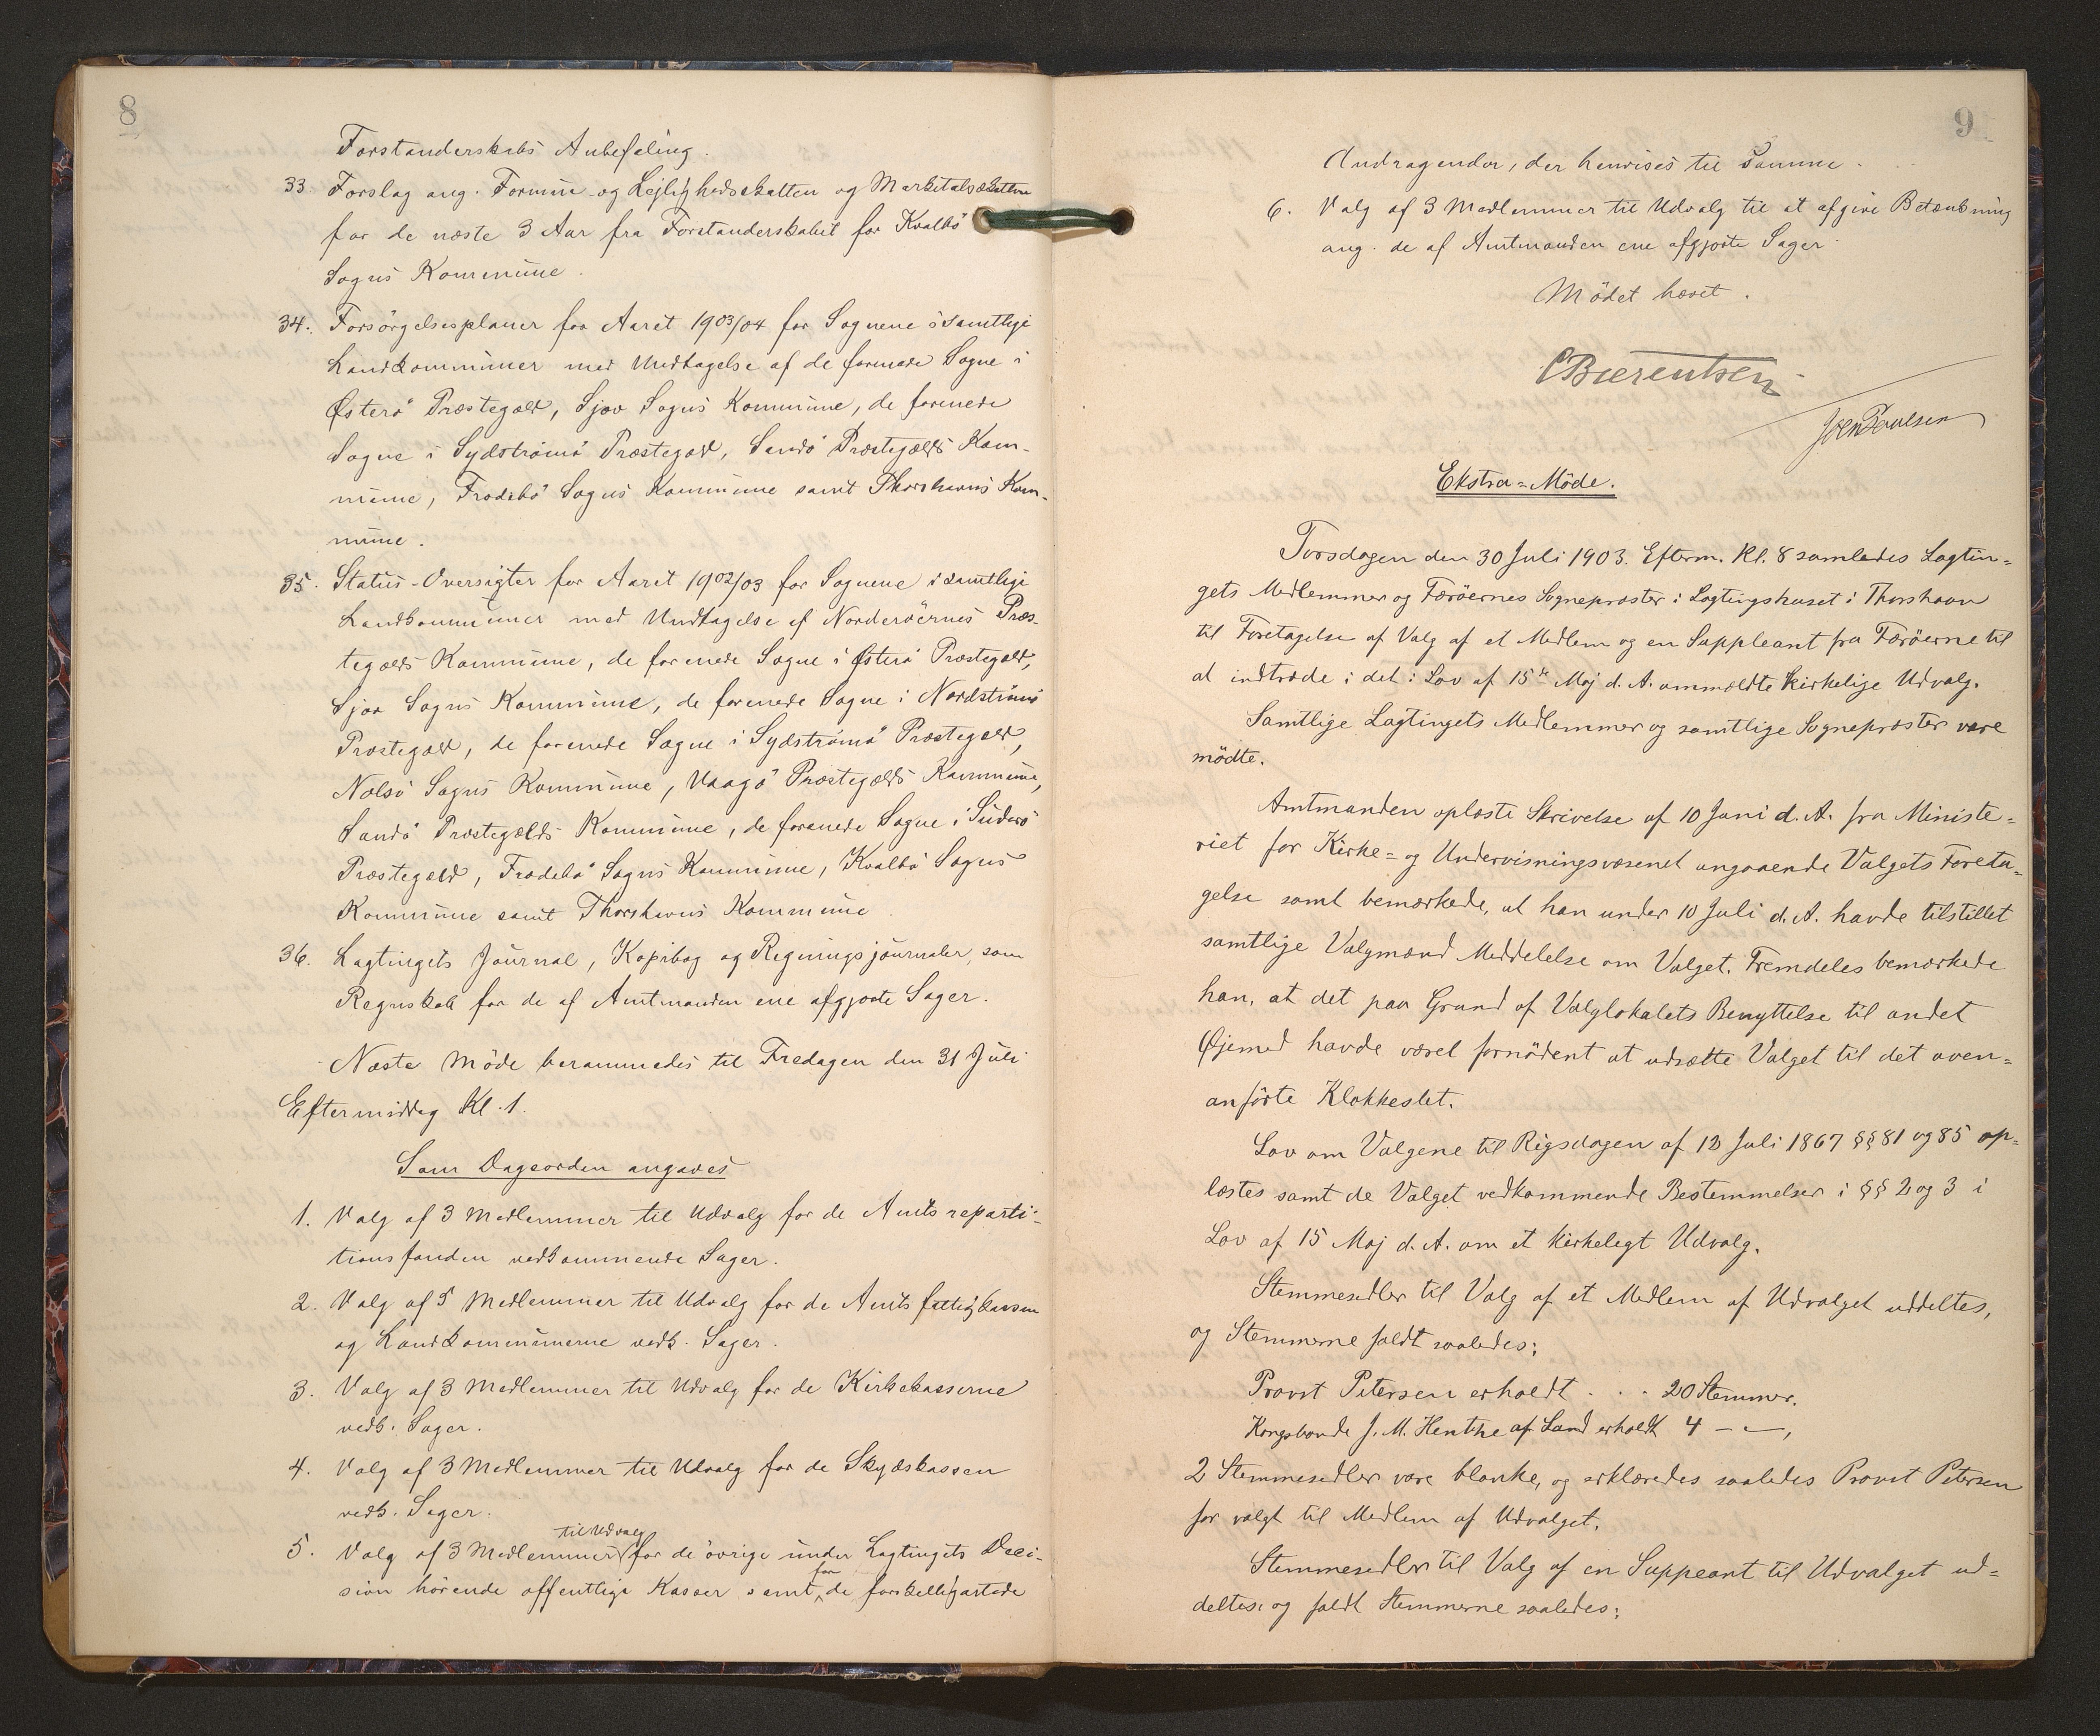 8
Forstanderskabs Anbefaling.
33. Forslag ang. Formue- og Lejlighedsskatten og Markatalsskatten
for de næste 3 Aar fra Forstanderskabet for Kvalbö
Sogns Kommune.
34. Forsörgelsesplaner for Aaret 1903/04 for Sognene i samtlige
Landkommuner med Undtagelse af de forenede Sogne i
Österö Præstegæld, Sjov Sogns Kommune, de forenede
Sogne i Sydströmö Præstegæld, Sandö Præstegælds Kom-
mune, Frodebö Sogns Kommune samt Thorshavns Kom-
mune.
35. Status-Oversigter for Aaret 1902/03 for Sognene i samtlige
Landkommuner med Undtagelse af Norderöernes Præs-
tegælds Kommune, de forenede Sogne i Österö Præstegæld,
Sjov Sogns Kommune, de forenede Sogne i Nordströmö
Præstegæld, de forenede Sogne i Sydströmö Præstegæld,
Nolsö Sogns Kommune, Vaagö Præstegælds Kommune,
Sandö Præstegælds Kommune, de forenede Sogne i Suderö
Præstegæld, Frodebö Sogns Kommune, Kvalbö Sogns
Kommune samt Thorshavns Kommune.
36. Lagtingets Journal, Kopibog og Regningsjournaler, som
Regnskab for de af Amtmanden ene afgjorte Sager.
Næste Möde berammedes til Fredagen den 31 Juli
Eftermiddag Kl. 1.
Som Dagsorden angaves
1. Valg af 3 Medlemmer til Udvalg for de Amtsreparti-
tionsfonden vedkommende Sager.
2. Valg af 5 Medlemmer til Udvalg for de Amtsfattigkassen
og Landkommunerne vedk. Sager.
3. Valg af 3 Medlemmer til Udvalg for de Kirkekasserne
vedk. Sager.
4. Valg af 3 Medlemmer til Udvalg for de Skydskassen
vedk. Sager.
5. Valg af 3 Medlemmer til Udvalg for de övrige under Lagtingets Deci-
sion hörende offentlige Kasser samt for de forskelligartede
9
Andragender, der henvises til Samme.
6. Valg af 3 Medlemmer til Udvalg til at afgive Betænkning
ang. de af Amtmanden ene afgjorte Sager.
Mödet hævet.
CBærentsen
Poulsen
Ekstra=Möde.
Torsdagen den 30 Juli 1903. Efterm. Kl. 8 samledes Lagtin=
gets Medlemmer og Færöernes Sognepræster i Lagtingshuset i Thorshavn
til Foretagelse af Valg af et Medlem og en Suppleant fra Færöerne til
at indtræde i det i Lov af 15de Maj d. A. ommeldte kirkelige Udvalg.
Samtlige Lagtingets Medlemmer og samtlige Sognepræster vare
mödte.
Amtmanden oplæste Skrivelse af 10 Juni d. A. fra Ministe=
riet for Kirke= og Undervisningsvæsenet angaaende Valgets Foreta=
gelse samt bemærkede, at han under 10 Juli d. A. havde tilstillet
samtlige Valgmænd Meddelelse om Valget. Fremdeles bemærkede
han, at det paa Grund af Valglokalets Benyttelse til andet
Öjemed havde været fornödent at udsætte Valget til det oven=
anförte Klokkeslet.
Lov om Valgene til Rigsdagen af 12 Juli 1867 §§ 81 og 85 op=
læstes samt de Valget vedkommende Bestemmelser i §§ 2 og 3 i
Lov af 15 Maj d. A. om et kirkeligt Udvalg.
Stemmesedler til Valg af et Medlem af Udvalget uddeltes,
og Stemmerne faldt saaledes:
Provst Petersen erholdt . . . 20 Stemmer.
Kongsbonde J. M. Hentze af Sand erholdt 4 — " —,
2 Stemmesedler vare blanke, og erklæredes saaledes Provst Petersen
for valgt til Medlem af Udvalget.
Stemmesedler til Valg af en Suppeant til Udvalget ud=
deltes og faldt Stemmerne saaledes: